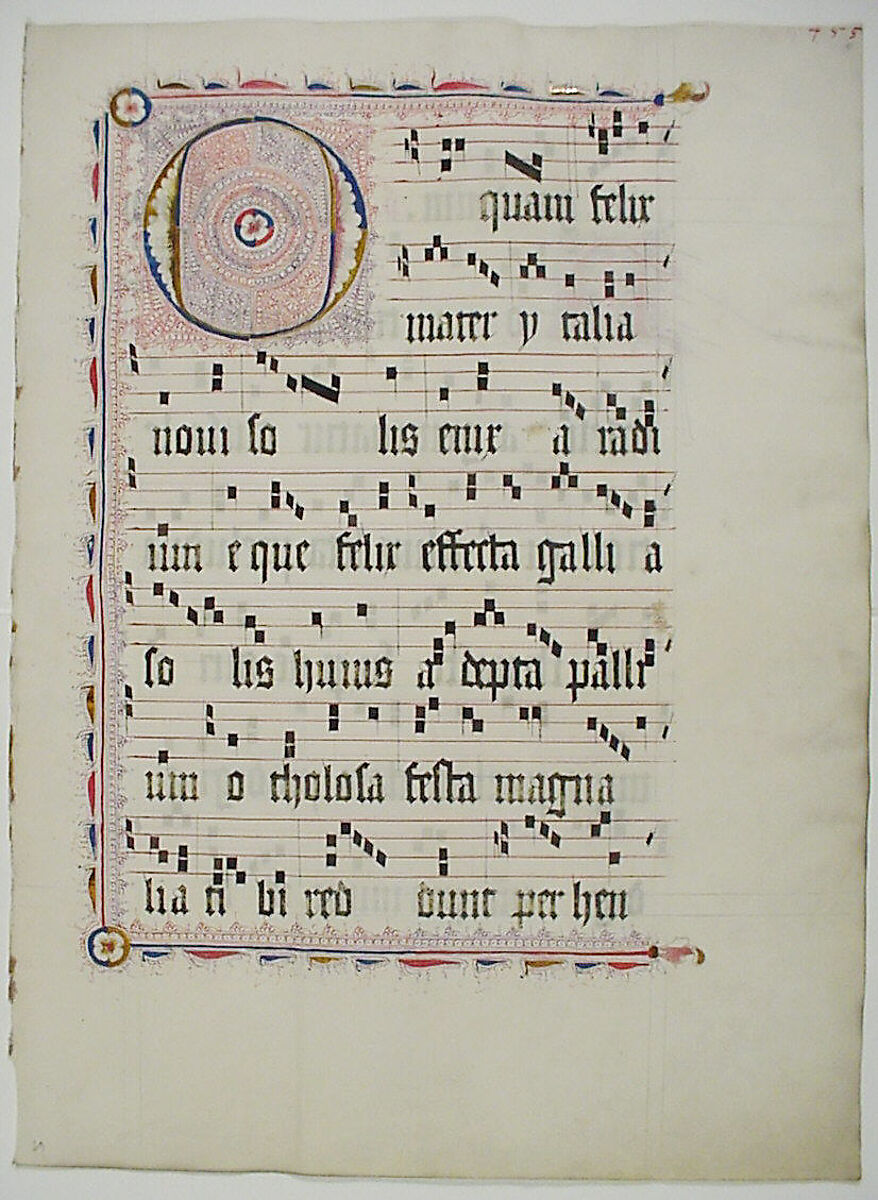 O quam felix
mater y talia
noui so lis enix a radi
um e que felix effecta galli a
so lis huius a depta palli
um o tholosa festa magna
lia ti bi red dunt per hen